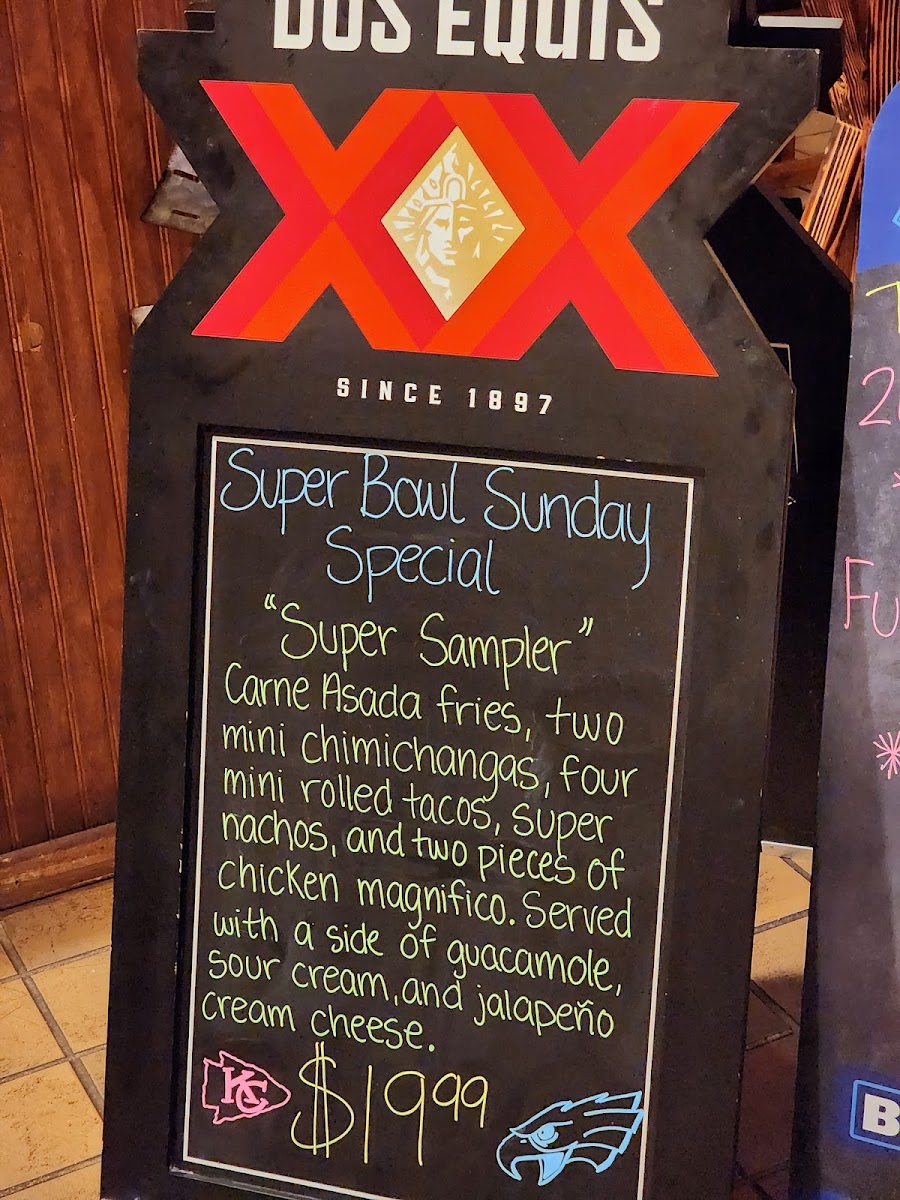 DOS EQUIS
XX
SINCE 1897
Super Bowl Sunday
Special
"Super Sampler"
Carne Asada fries, two
mini chimichangas, four
mini rolled tacos, super
nachos, and two pieces of
chicken magnifico. Served
with a side of guacamole,
sour cream, and jalapeño
cream cheese.
KC
$19.99
2
Fu
B